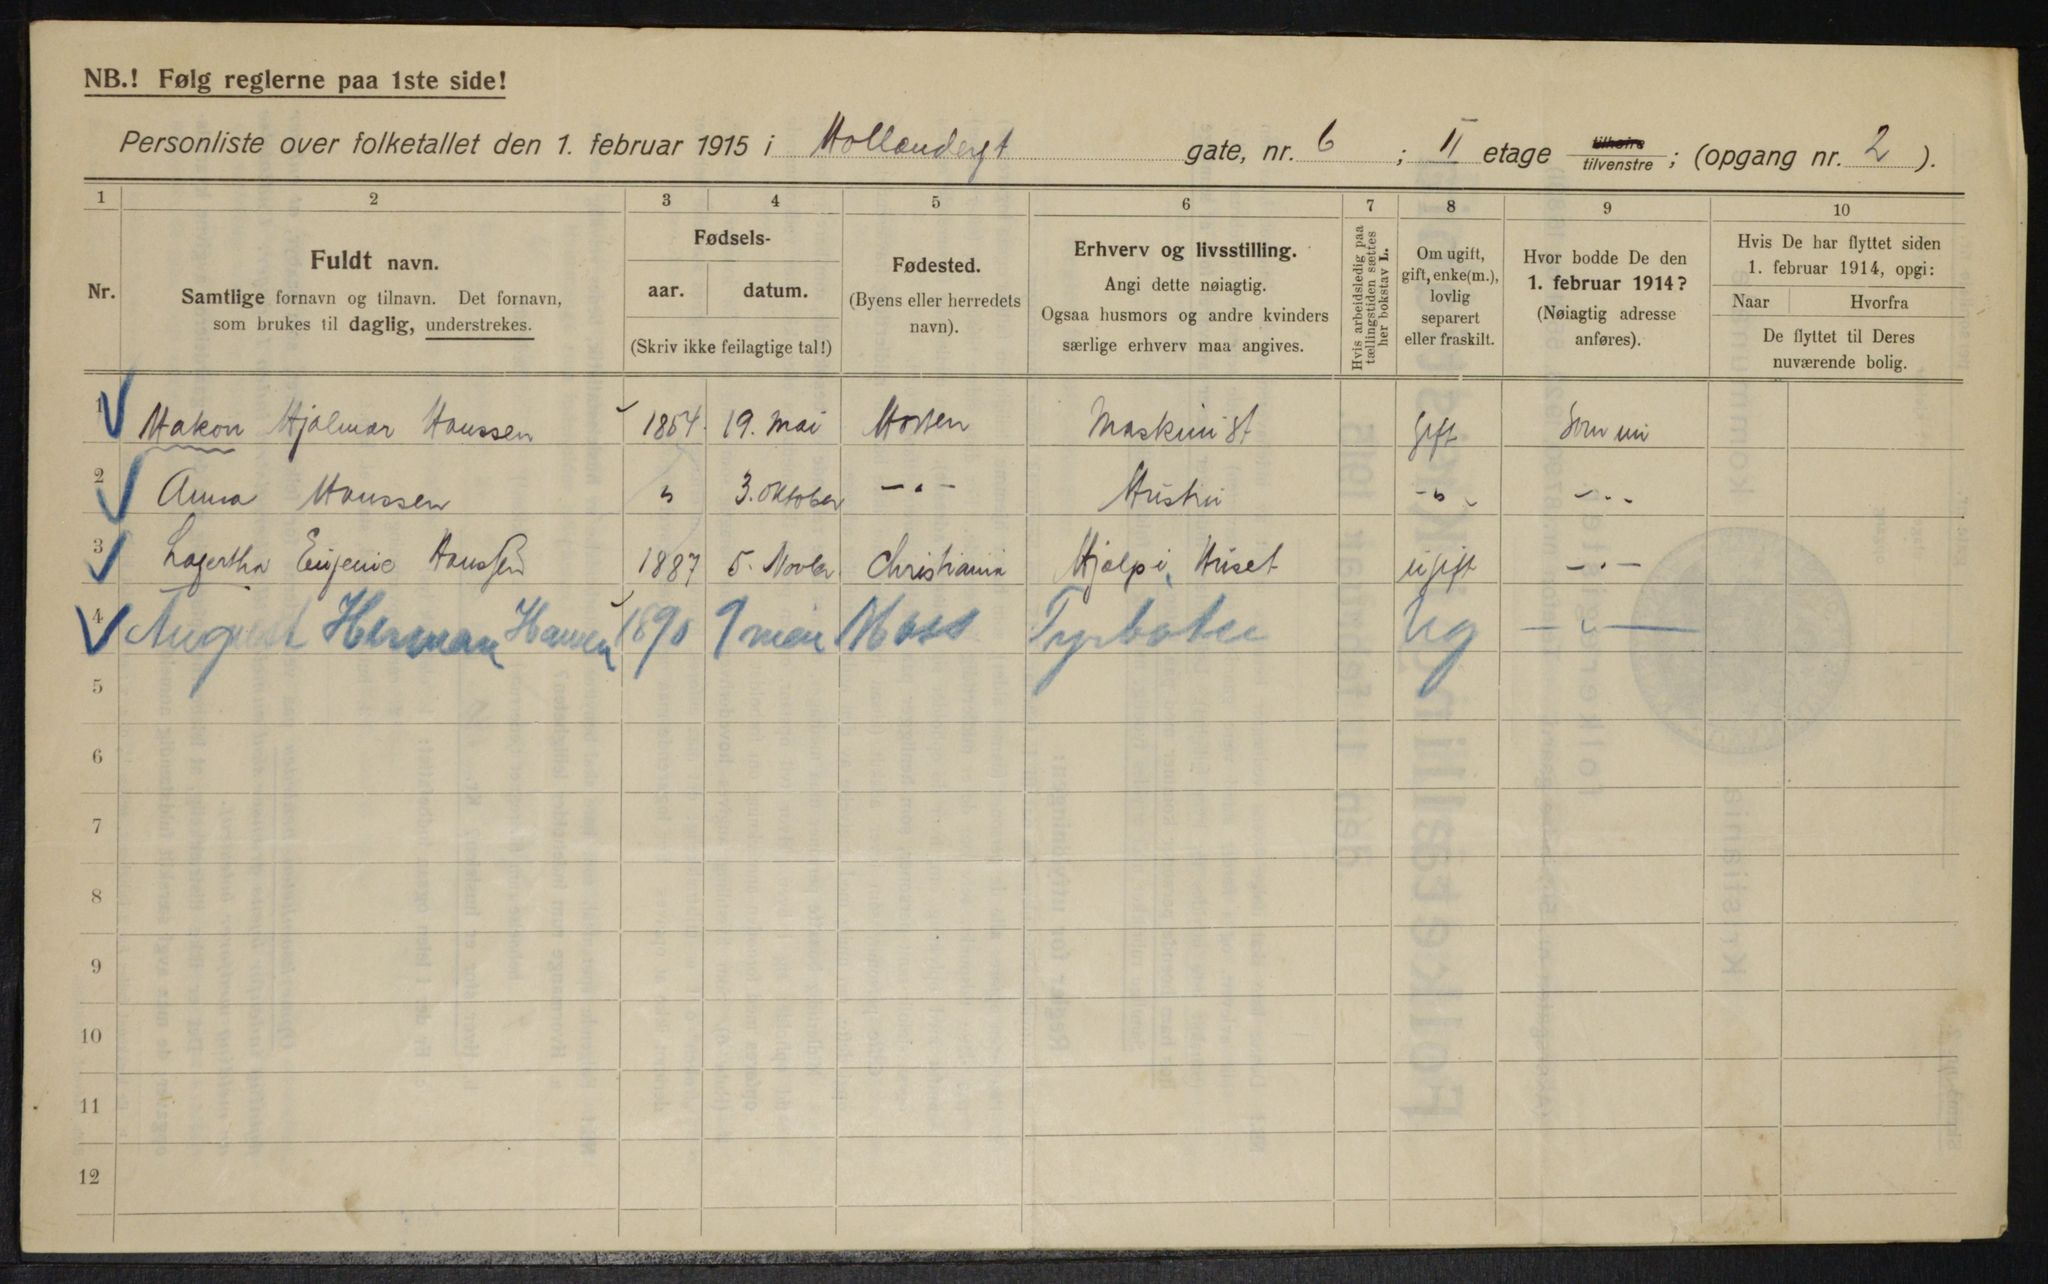 NB.! Følg reglerne paa 1ste side!
Personliste over folketallet den 1. februar 1915 i Hollendergt gate, nr. 6 ; II etage tilhøire tilvenstre ; (opgang nr. 2 ).
1 2 3 4 5 6 7 8 9 10
Nr.
Fuldt navn.
Samtlige fornavn og tilnavn. Det fornavn,
som brukes til daglig, understrekes.
Fødsels-
aar. datum.
(Skriv ikke feilagtige tal!)
Fødested.
(Byens eller herredets
navn).
Erhverv og livsstilling.
Angi dette nøiagtig.
Ogsaa husmors og andre kvinders
særlige erhverv maa angives.
Hvis arbeidsledig paa
tællingstiden sættes
her bokstav L.
Om ugift,
gift, enke(m.),
lovlig
separert
eller fraskilt.
Hvor bodde De den
1. februar 1914?
(Nøiagtig adresse
anføres).
Hvis De har flyttet siden
1. februar 1914, opgi:
Naar Hvorfra
De flyttet til Deres
nuværende bolig.
1 Hakon Hjalmar Hanssen 1854. 19. Mai Horten Maskinist Gift Som nu
2 Anna Hanssen " 3. Oktober -"- Hustru -"- -"-
3 Lagertha Eugenie Hanssen 1887 5. Novbr. Christiania Hjælp i Huset ugift -"-
4 August Herman Hansen 1890 9 mai Moss Fyrbøter Ug -"-
5
6
7
8
9
10
11
12